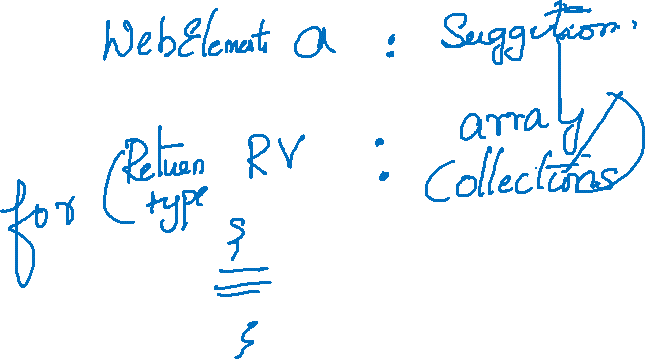 WebElement a : Suggetion.
for (Retuen type RV : array Collections)
{
}